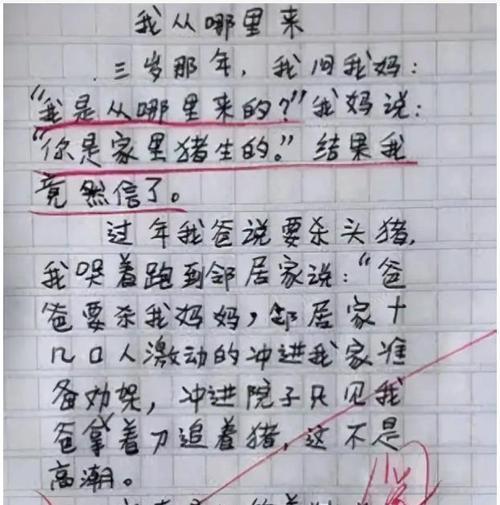 我从哪里来
三岁那年，我问我妈：
“我是从哪里来的？”我妈说：
“你是家里猪生的。”结果我
竟然信了。
过年我爸说要杀头猪，
我哭着跑到邻居家说：“爸
爸要杀我妈妈，邻居家十
几口人激动的冲进我家准
备劝架，冲进院子只见我
爸拿着刀追着猪，这不是
高潮。